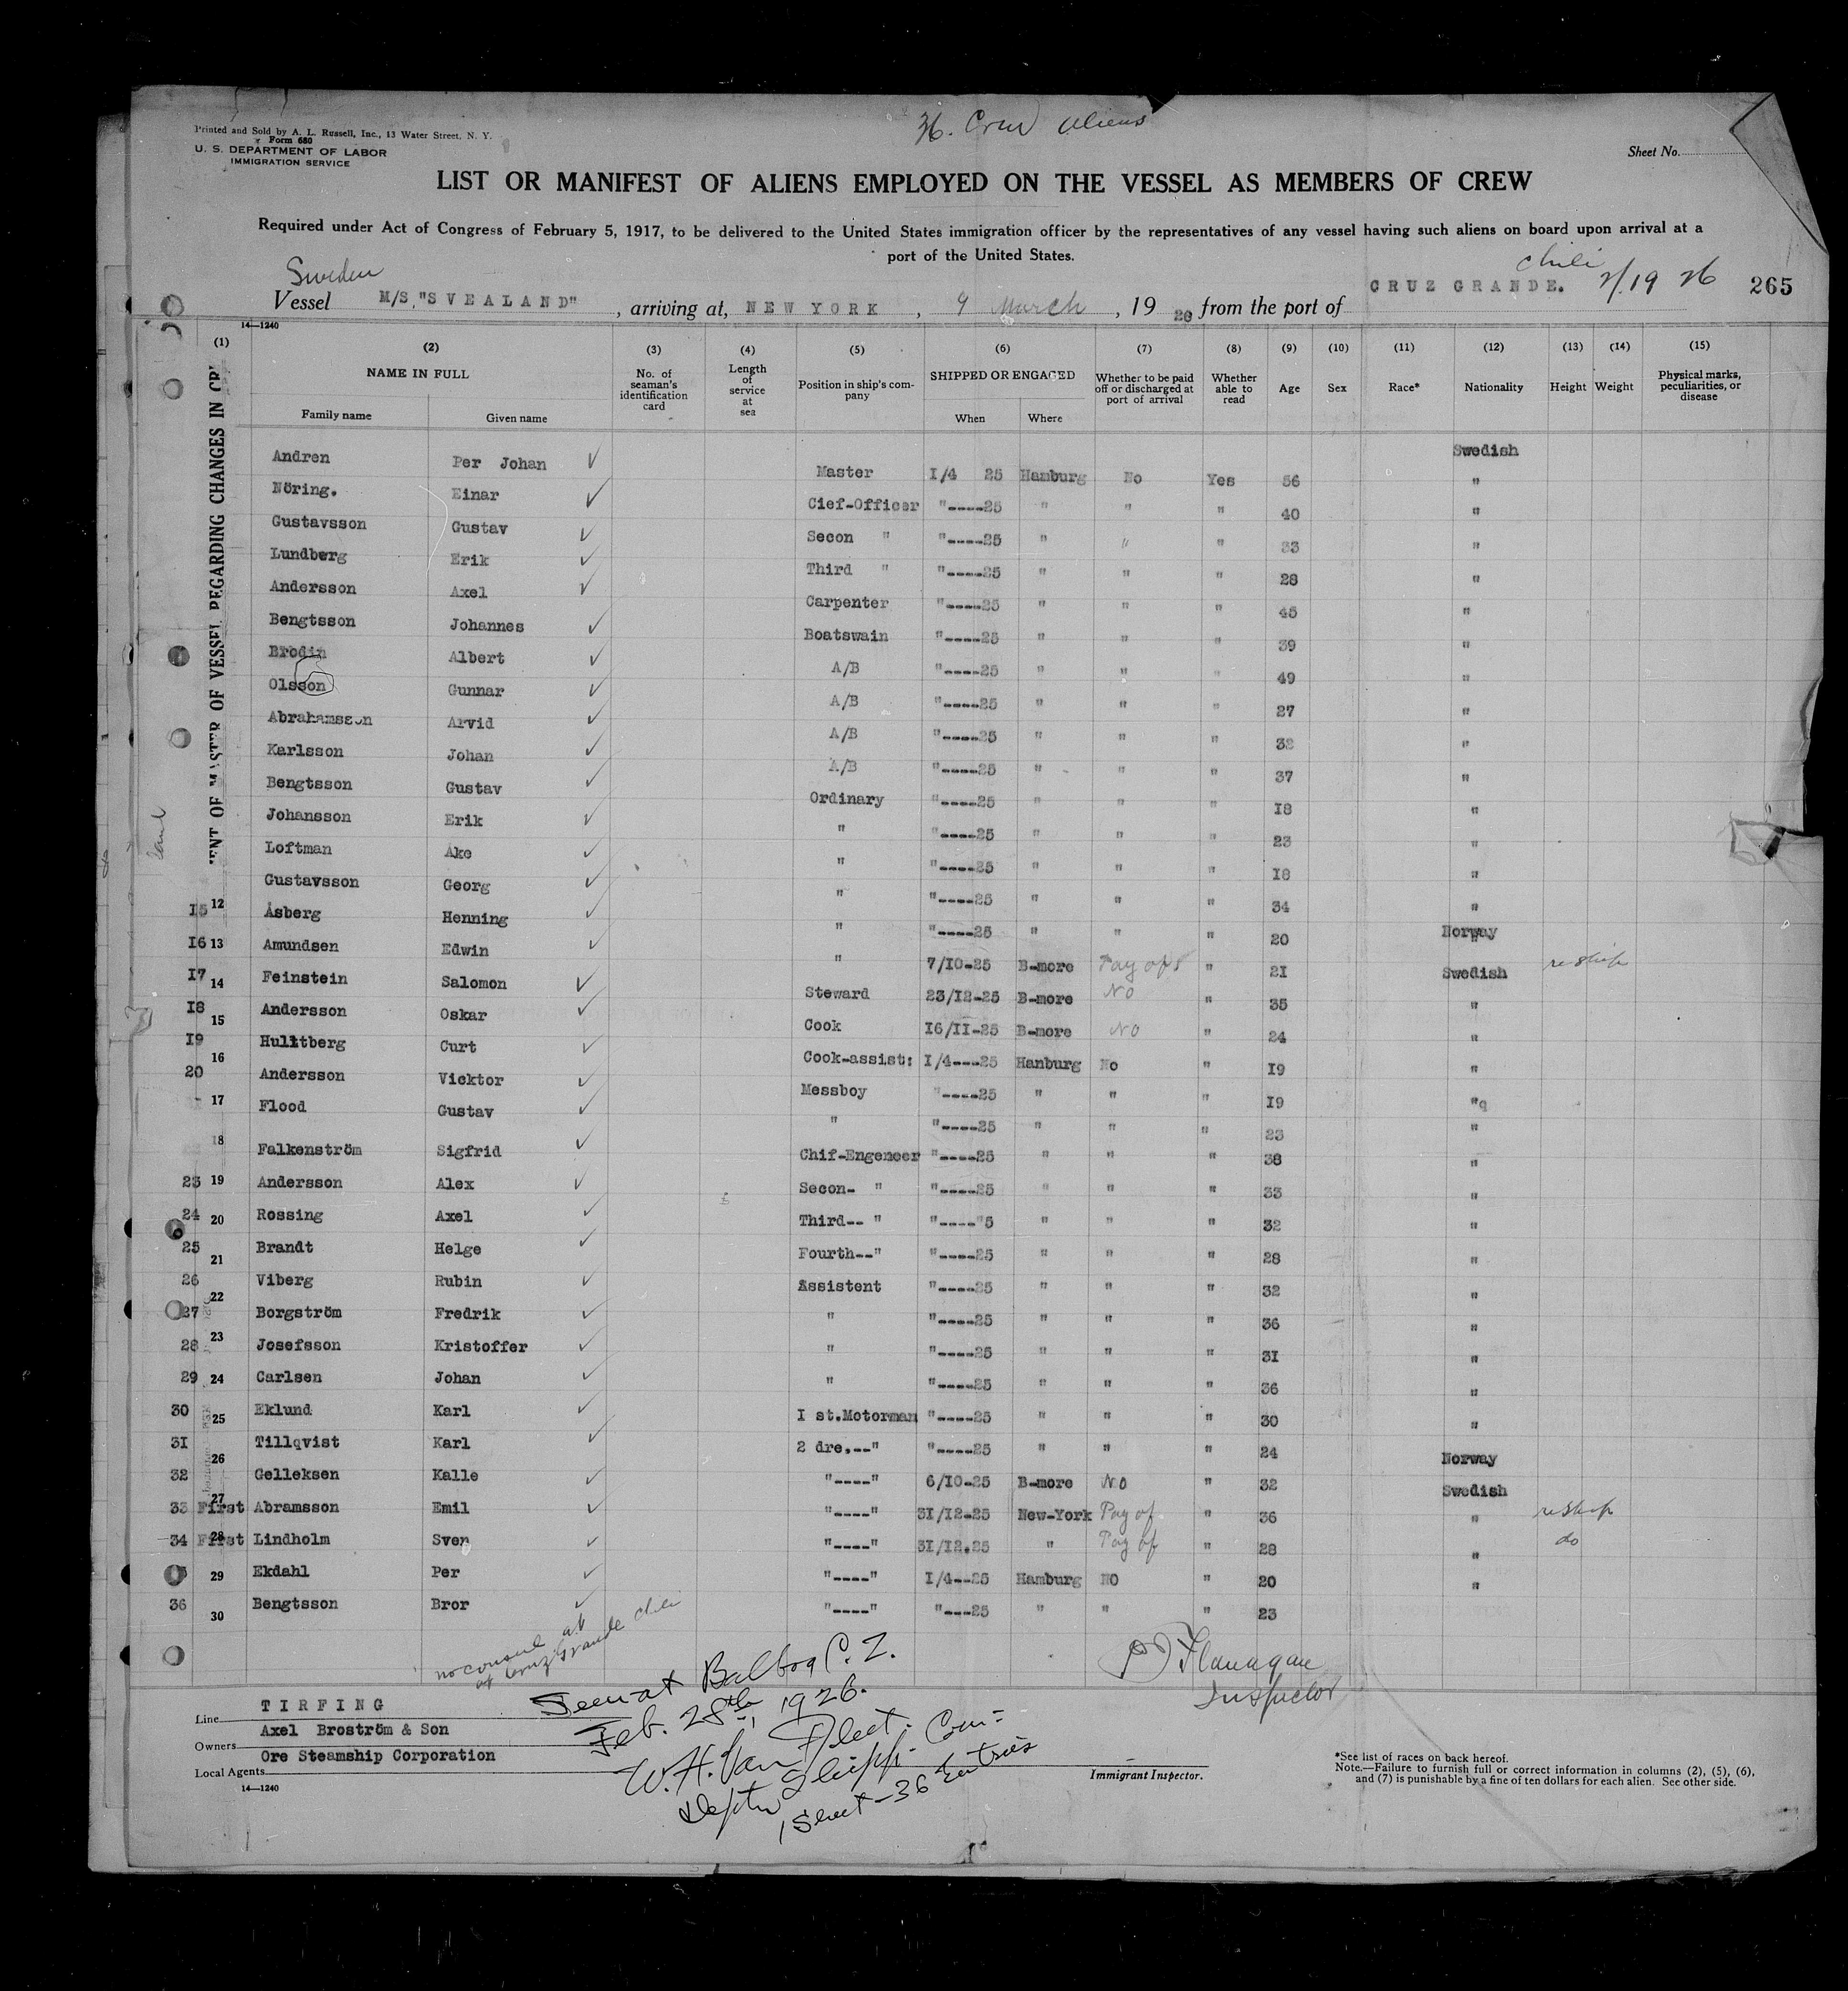 36. Crew Aliens
Printed and Sold by A. L. Russell, Inc., 13 Water Street, N. Y.
Form 680
U. S. DEPARTMENT OF LABOR
IMMIGRATION SERVICE
Sheet No.
LIST OR MANIFEST OF ALIENS EMPLOYED ON THE VESSEL AS MEMBERS OF CREW
Required under Act of Congress of February 5, 1917, to be delivered to the United States immigration officer by the representatives of any vessel having such aliens on board upon arrival at a
port of the United States.
Sweden
Chili
Vessel M/S. "SVEALAND", arriving at, NEW YORK, 9 March, 19 26 from the port of CRUZ GRANDE. 2/19 26 265
14—1240
(1) (2) (3) (4) (5) (6) (7) (8) (9) (10) (11) (12) (13) (14) (15)
NAME IN FULL No. of seaman's identification card Length of service at sea Position in ship's company SHIPPED OR ENGAGED Whether to be paid off or discharged at port of arrival Whether able to read Age Sex Race* Nationality Height Weight Physical marks, peculiarities, or disease
Family name Given name When Where
MENT OF MASTER OF VESSEL REGARDING CHANGES IN CR
Andren Per Johan ✓ Master I/4 25 Hamburg No Yes 56 Swedish
Nöring. Einar ✓ Cief-Officer "----25 " " " 40 "
Gustavsson Gustav ✓ Secon " "----25 " " " 33 "
Lundberg Erik ✓ Third " "----25 " " " 28 "
Andersson Axel ✓ Carpenter "----25 " " " 45 "
Bengtsson Johannes ✓ Boatswain "----25 " " " 39 "
Brodin Albert ✓ A/B "----25 " " " 49 "
Olsson Gunnar ✓ A/B "----25 " " " 27 "
Abrahamsson Arvid ✓ A/B "----25 " " " 32 "
Karlsson Johan ✓ A/B "----25 " " " 37 "
Bengtsson Gustav ✓ Ordinary "----25 " " " I8 "
Johansson Erik ✓ " "----25 " " " 23 "
Loftman Åke ✓ " "----25 " " " I8 "
Gustavsson Georg ✓ " "----25 " " " 34 "
I5 12 Åsberg Henning ✓ " "----25 " " " 20 "
I6 13 Amundsen Edwin ✓ " 7/I0-25 B-more Pay off " 2I Norway reship
I7 14 Feinstein Salomon ✓ Steward 23/I2-25 B-more No " 35 Swedish
I8 15 Andersson Oskar ✓ Cook I6/II-25 B-more No " 24 "
I9 16 Hulltberg Curt ✓ Cook-assist: I/4---25 Hanburg No " I9 "
20 Andersson Vicktor ✓ Messboy "----25 " " " I9 "
17 Flood Gustav ✓ " "----25 " " " 23 "
18 Falkenström Sigfrid ✓ Chif-Engeneer "----25 " " " 38 "
23 19 Andersson Alex ✓ Secon- " "----25 " " " 33 "
24 20 Rossing Axel ✓ Third-- " "----"5 " " " 32 "
25 21 Brandt Helge ✓ Fourth--" "----25 " " " 28 "
26 22 Viberg Rubin ✓ Assistent "----25 " " " 32 "
27 Borgström Fredrik ✓ " "----25 " " " 36 "
28 23 Josefsson Kristoffer ✓ " "----25 " " " 3I "
29 24 Carlsen Johan ✓ " "----25 " " " 36 "
30 25 Eklund Karl ✓ I st.Motorman "----25 " " " 30 "
3I 26 Tillqvist Karl ✓ 2 dre.--" "----25 " " " 24 "
32 Gelleksen Kalle ✓ "----" 6/I0-25 B-more No " 32 Norway
33 27 First Abramsson Emil ✓ "----" 3I/I2-25 New-York Pay of " 36 Swedish reship
34 28 First Lindholm Sven ✓ "----" 3I/I2.25 " Pay of " 28 " do
29 Ekdahl Per ✓ "----" I/4--25 Hamburg NO " 20 "
36 30 Bengtsson Bror ✓ "----" "---25 " " " 23 "
no consul at
at Cruz Grande Chili
Seen at Balboa C. Z.
Feb. 28th, 1926.
W. H. Van Fleet.
Depty Shipp. Com-
1 Sheet - 36 Entries
Flanagan
Inspector
Line TIRFING
Owners Axel Broström & Son
Local Agents Ore Steamship Corporation
14—1240
Immigrant Inspector.
*See list of races on back hereof.
Note.—Failure to furnish full or correct information in columns (2), (5), (6),
and (7) is punishable by a fine of ten dollars for each alien. See other side.